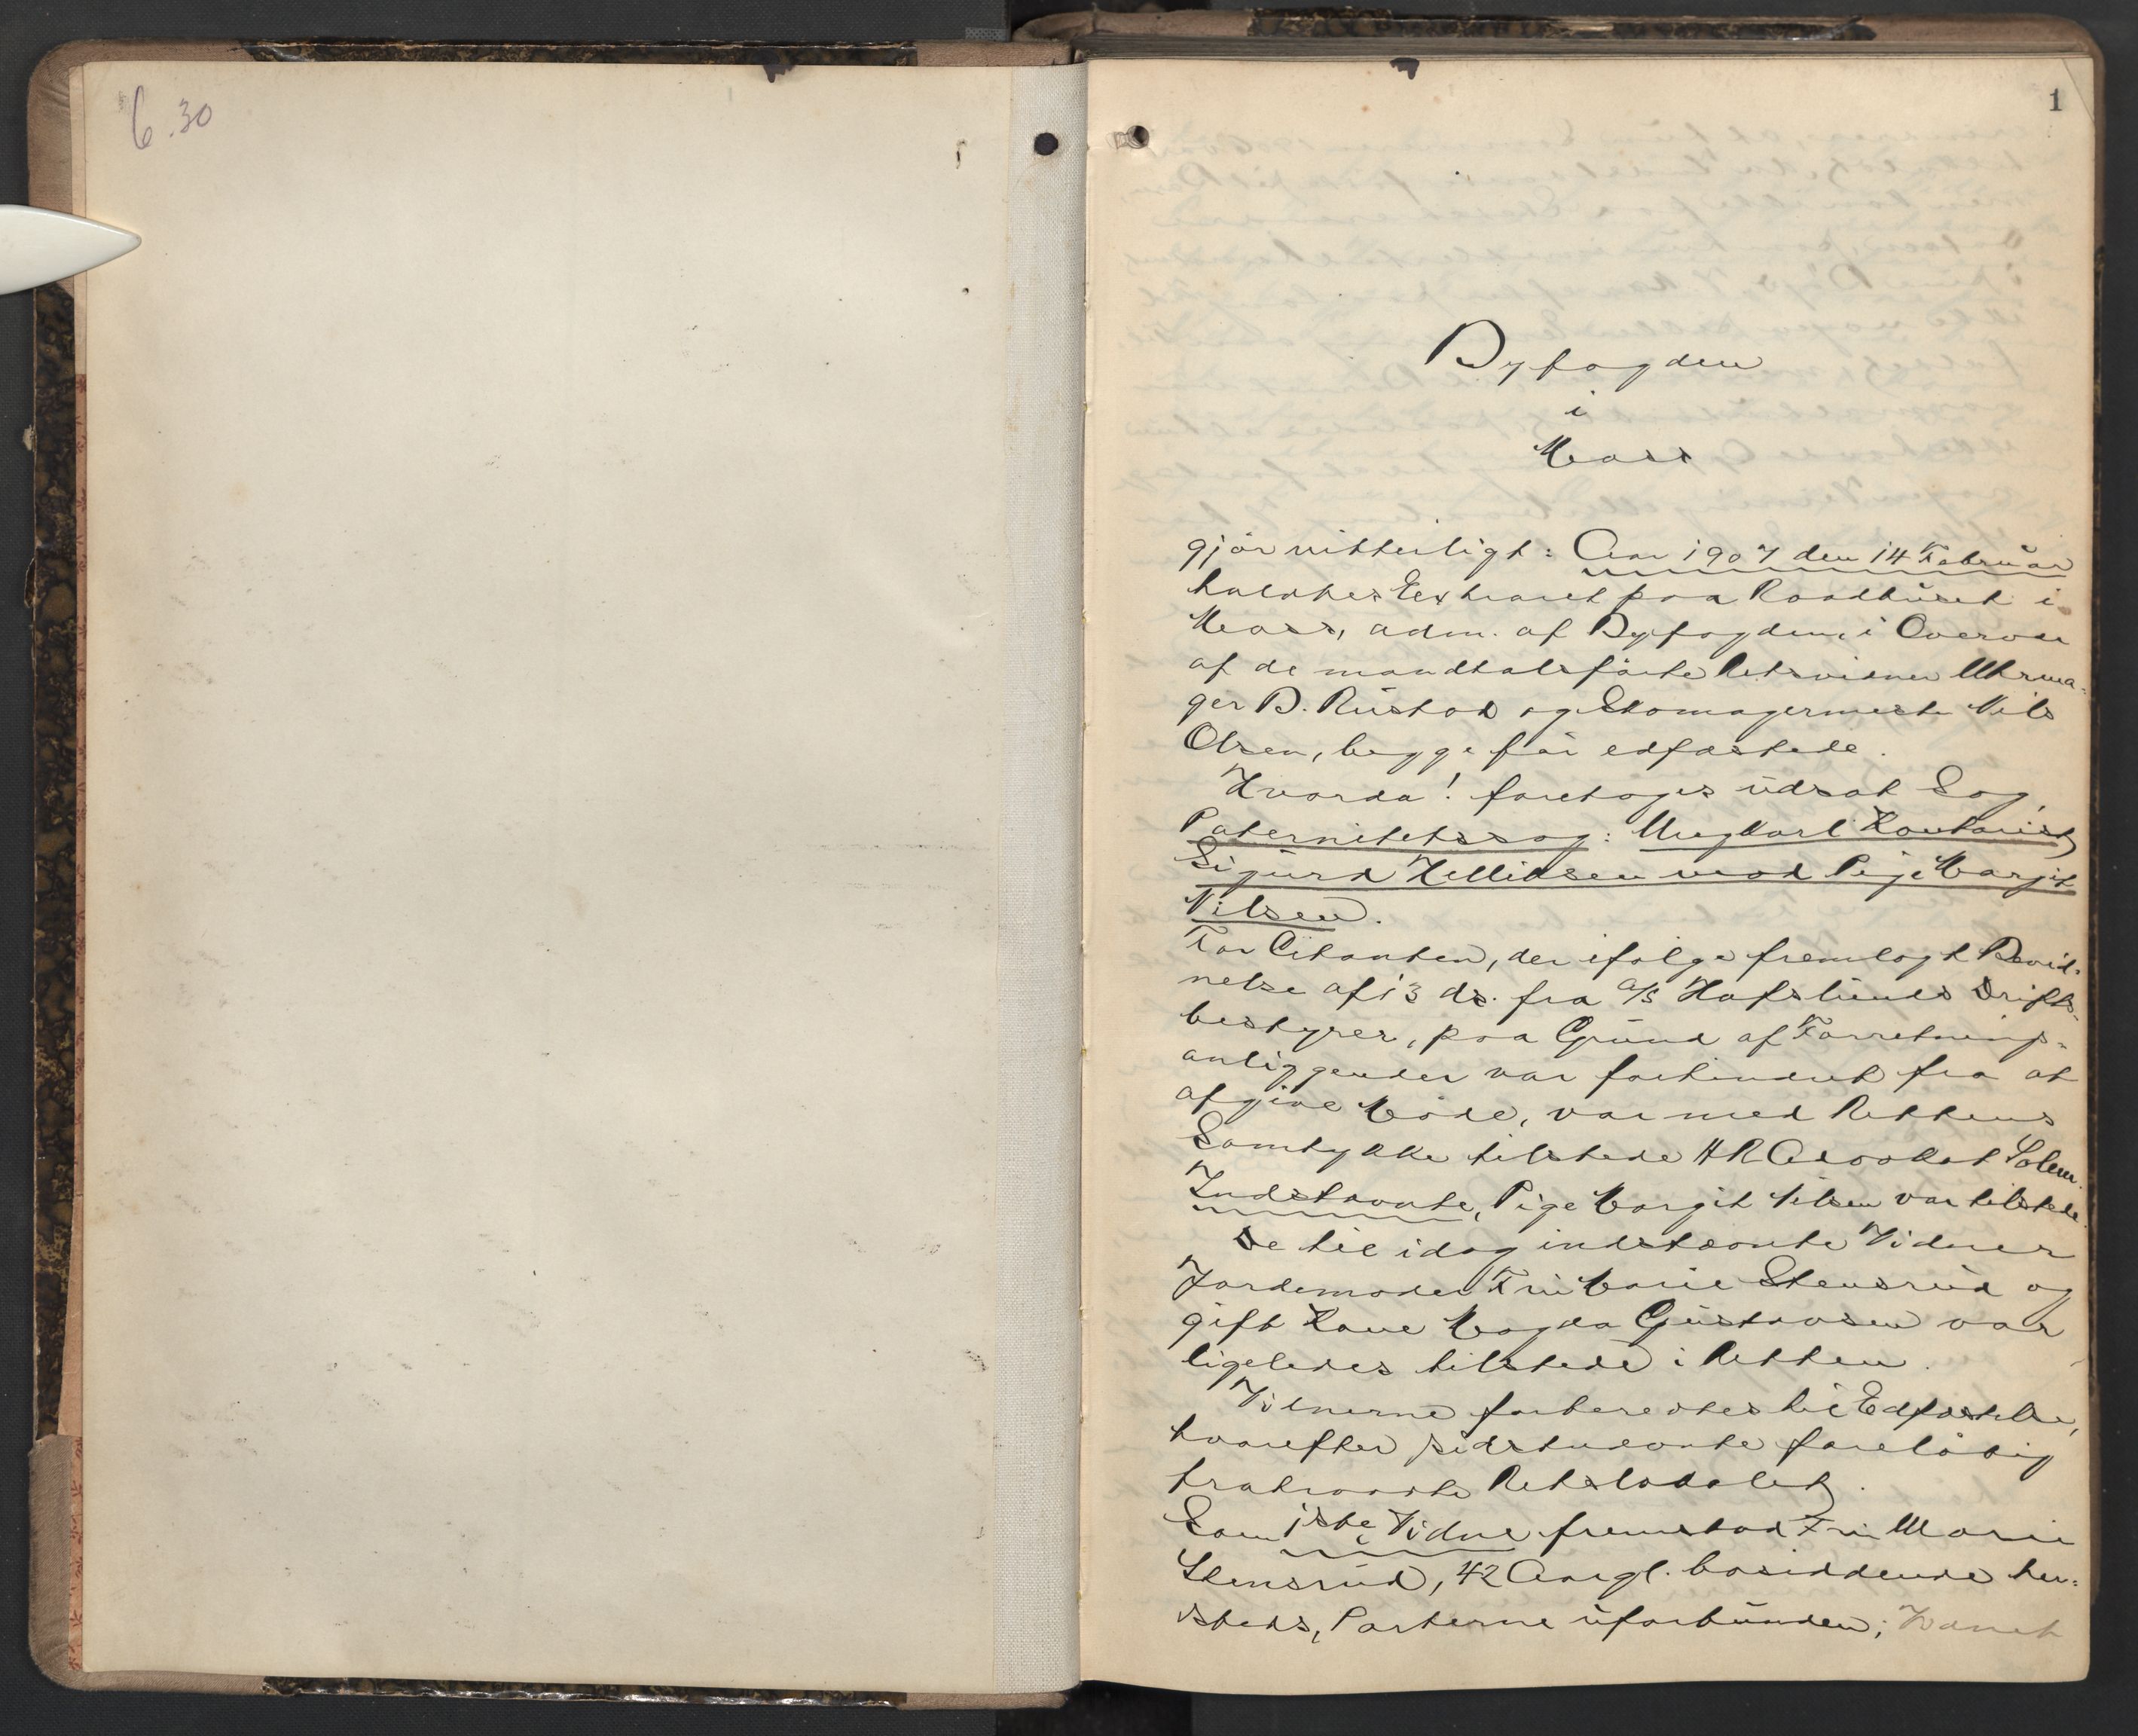 6.30
1
Byfogden
i
Moss
gjør vitterligt: Aar 1907 den 14 Februar
holdtes Extraret paa Raadhuset i
Moss, adm. af Byfogden, i Overvær
af de mandtalsførte Retsvidner Uhrma-
ger B. Rustad og Skomagermester Nils
Olsen, begge før edfæstede.
Hvorda! foretoges udsat Sag,
Paternitetssag: Ungkarl Kontorist
Sigurd Hellidsen mod Pige Margit
Nilsen.
For Citanten, der ifølge fremlagt Bevid-
nelse af 13 ds. fra A/S Hafslunds Drifts-
bestyrer, paa Grund af Forretnings-
anliggender var forhindret fra at
afgive Møde, var med Rettens
Samtykke tilstede HRAdvokat Solem.
Indstævnte, Pige Margit Nilsen var tilstede.
De til idag indstævnte Vidner
Jordemoder Fru Marie Stensrud og
gift Kone Magda Gustavsen var
ligeledes tilstede i Retten.
Vidnerne forberedtes til Edfæstelse,
hvorefter sidstnævnte foreløbig
fratraadte Retslokalet.
Som 1ste Vidne fremstod Fru Marie
Stensrud, 42 Aargl. bosiddende her-
steds, Parterne uforbunden; Vidnet